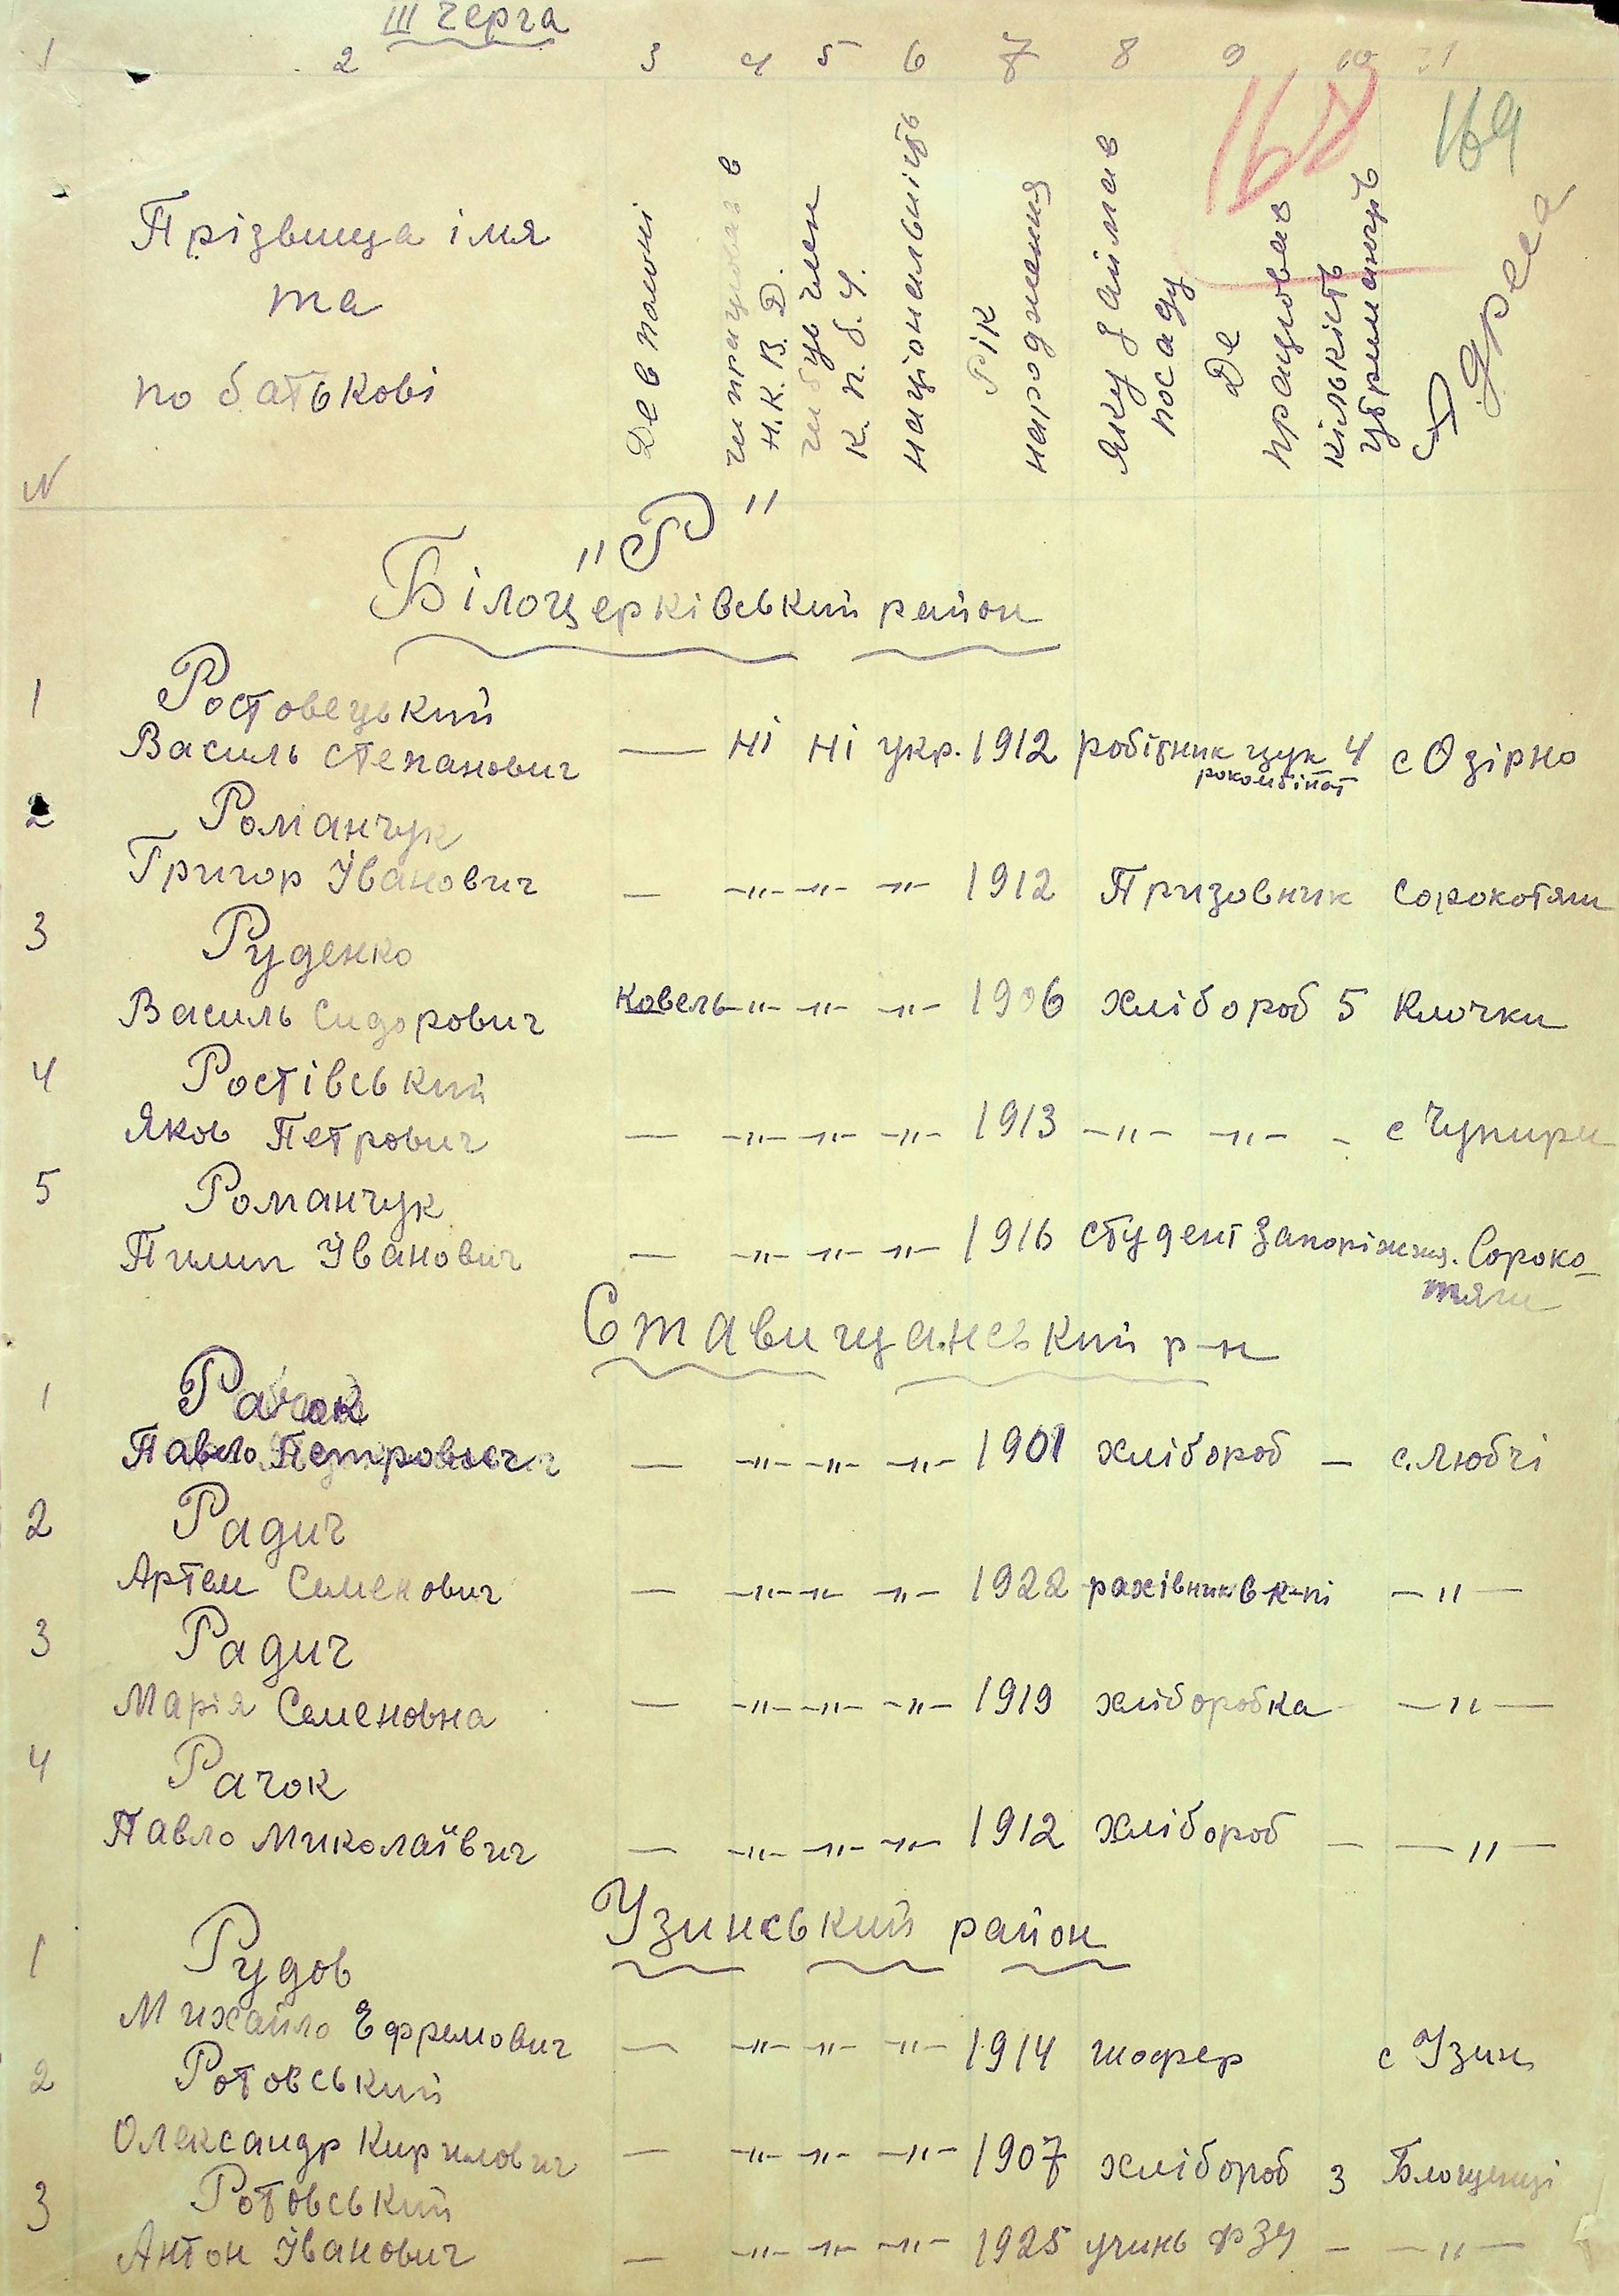 III черга
1 2 3 4 5 6 7 8 9 10 11
167 169
N
Прізвища імя
та
по батькові
Де в полоні
чи працював в
Н.К.В.Д.
чи був член
К.П.б.У.
національність
Рік
народження
Яку займав
посаду
Де
працював
кількість
утриманців
Адреса
"Р"
Білоцерківський район
1 Ростовецький
Василь Степанович — ні ні укр. 1912 робітник цук 4 с Озірно
рокомбінат
2 Романчук
Григор Іванович — -"- -"- -"- 1912 Призовник Сорокотяги
3 Руденко
Василь Сидорович Ковель -"- -"- -"- 1906 хлібороб 5 Клочки
4 Ростівський
Яков Петрович — -"- -"- -"- 1913 -"- -"- - с Чупири
5 Романчук
Пилип Іванович — -"- -"- -"- 1916 студент Запоріжжя. Сороко-
тяги
Ставищанський р-н
1 Рачок
Павло Петрович — -"- -"- -"- 1901 хлібороб — с. Любчі
2 Радич
Артем Семенович — -"- -"- -"- 1922 рахівник в к-пі -"-
3 Радич
Марія Семеновна — -"- -"- -"- 1919 хліборобка -"-
4 Рачок
Павло Миколаївич — -"- -"- -"- 1912 хлібороб — -"-
Узинський район
1 Рудов
Михайло Ефремович — -"- -"- -"- 1914 шофер с Узин
2 Ротовський
Олександр Кирилович — -"- -"- -"- 1907 хлібороб 3 Блощинці
3 Ротовський
Антон Іванович — -"- -"- -"- 1925 учинь ФЗУ - -"-